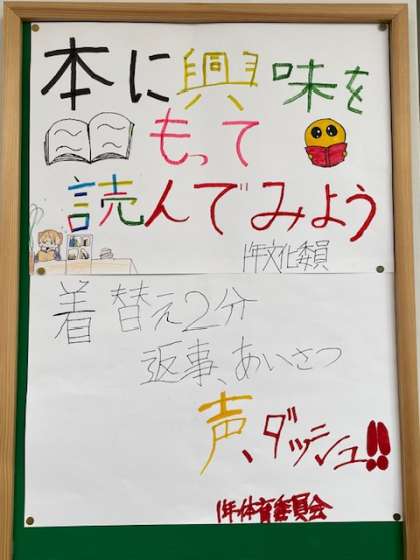 本に興味を
もって
読んでみよう
1年文化委員
着替え2分
返事、あいさつ
声、ダッシュ!!
1年体育委員会